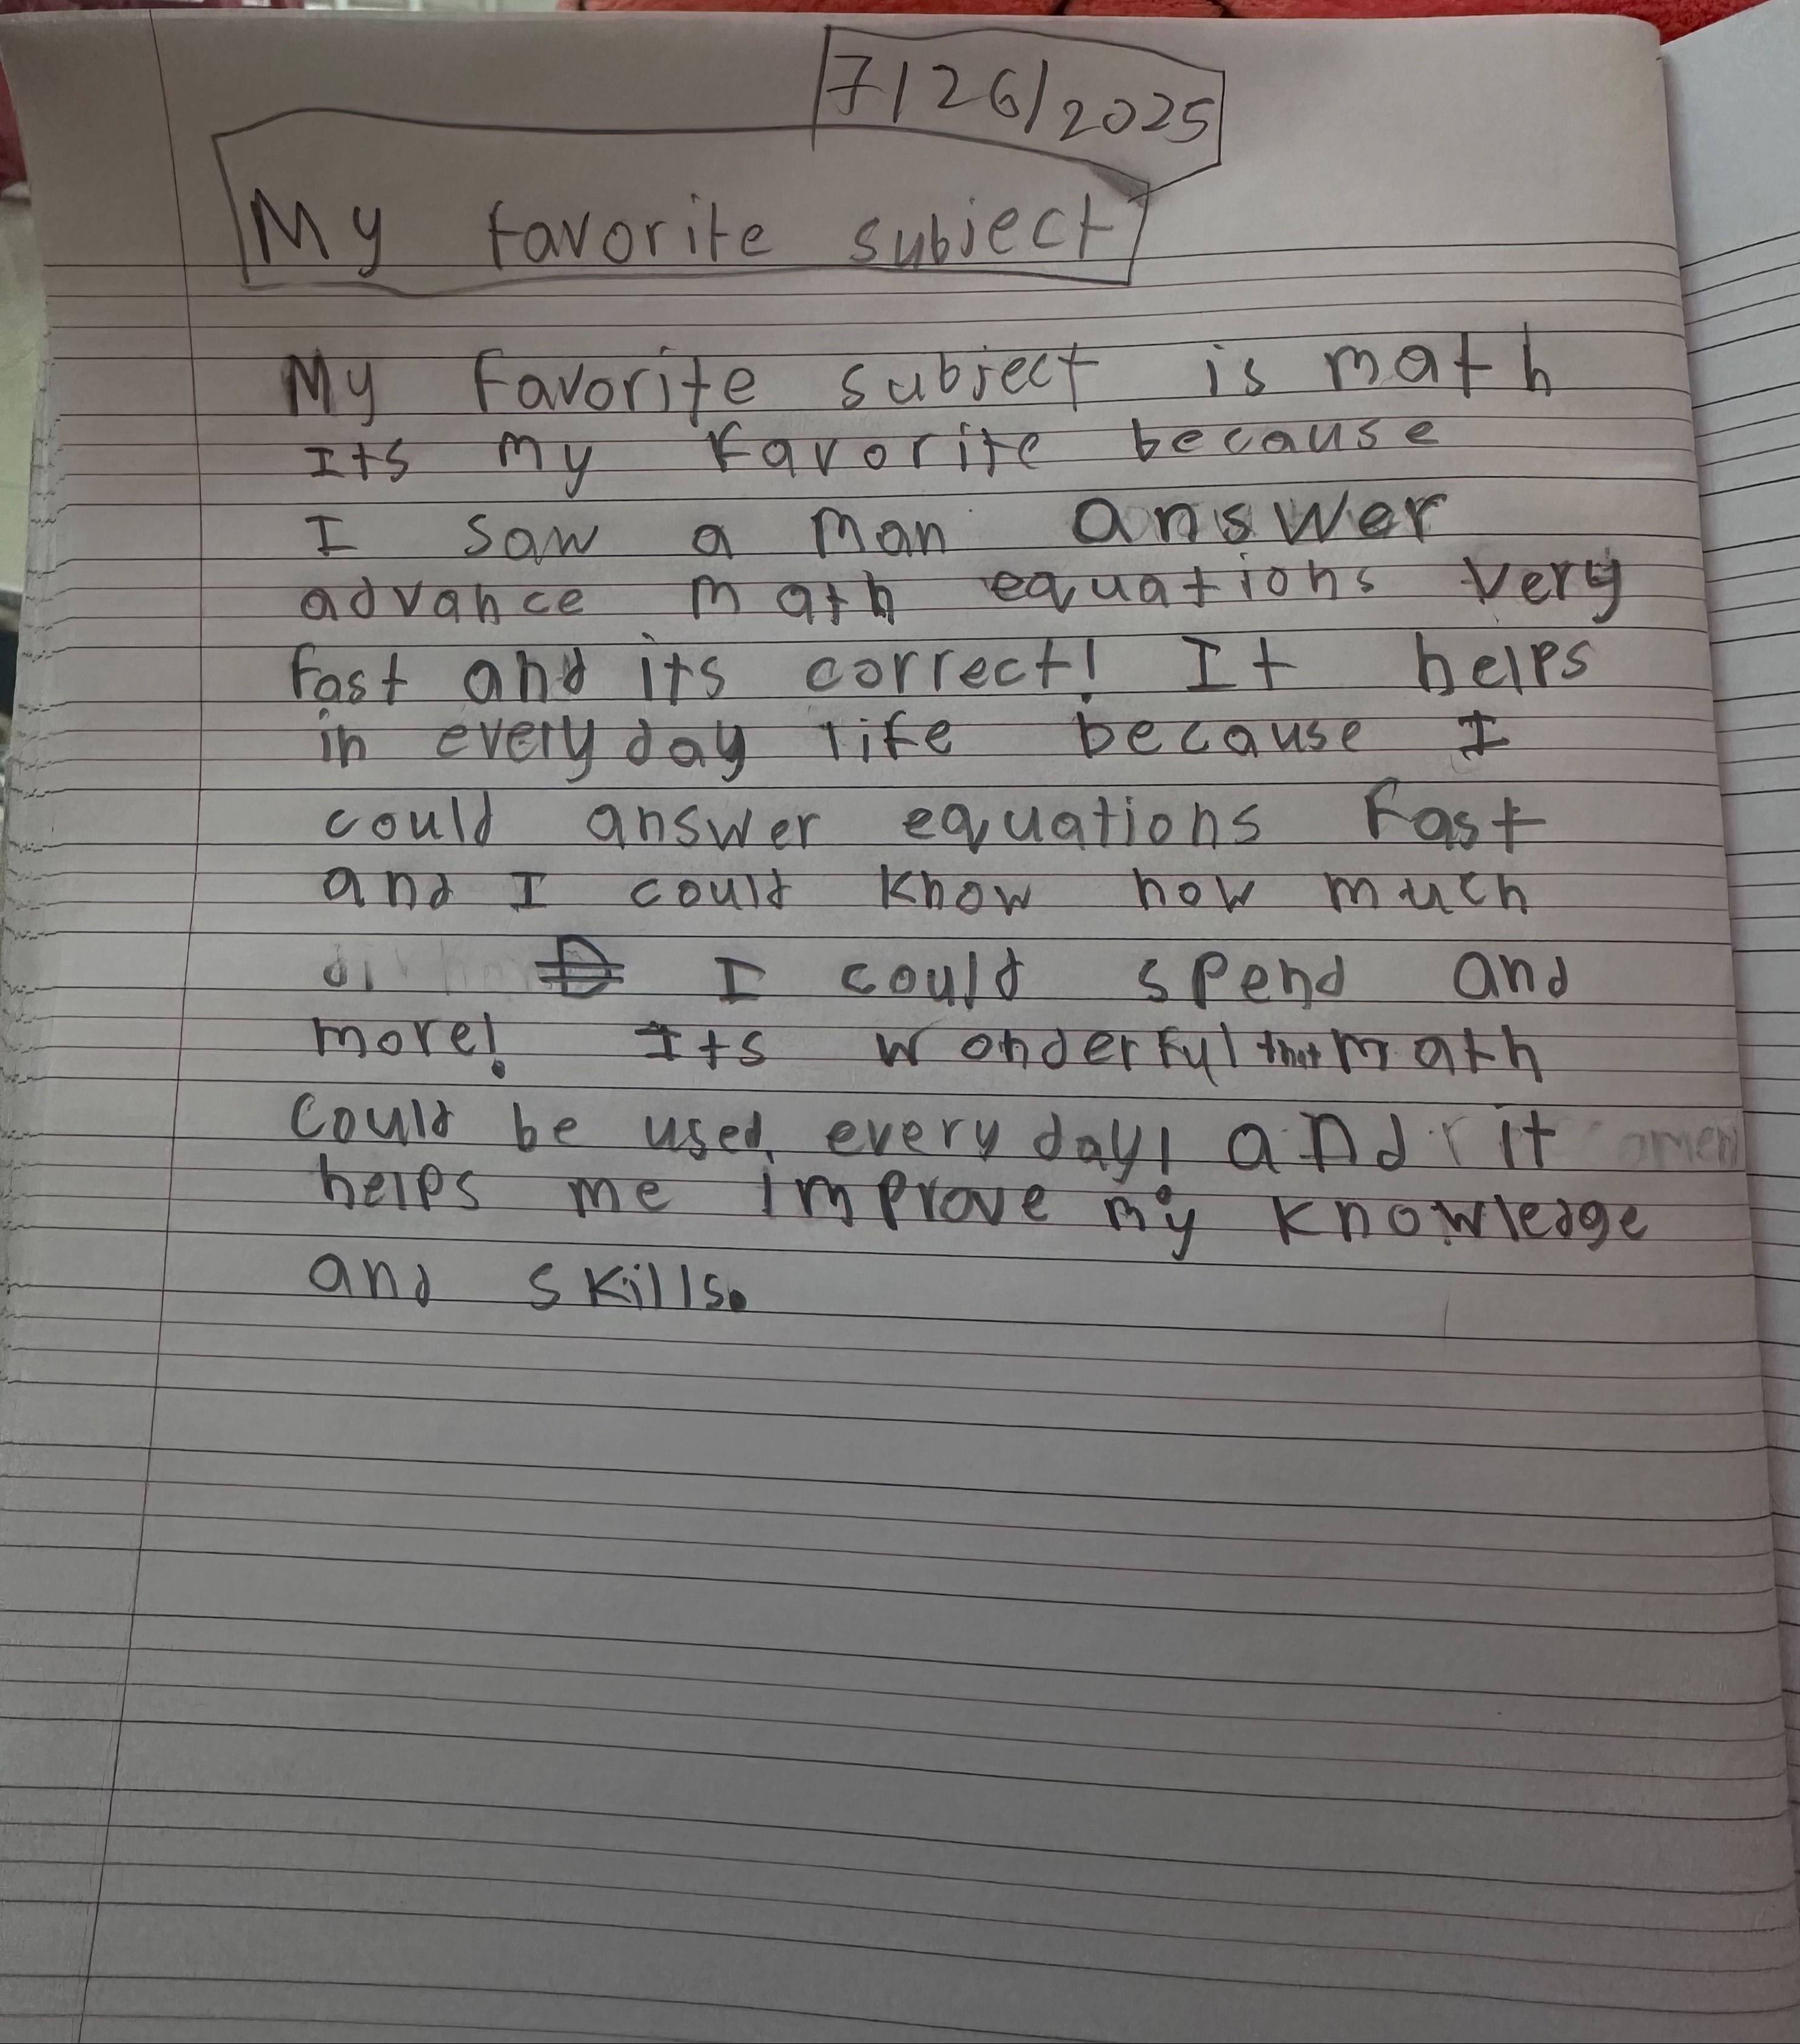 7/26/2025
My favorite subject
My favorite subject is math
Its my favorite because
I saw a man answer
advance math equations very
fast and its correct! It helps
in everyday life because I
could answer equations fast
and I could know how much
I could spend and
more! Its wonderful that math
could be used every day, and it
helps me improve my knowledge
and skills.